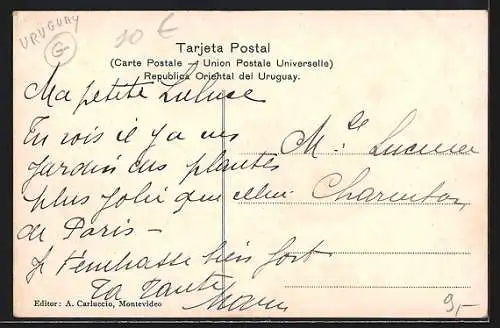 URUGUAY
G
10 €
Tarjeta Postal
(Carte Postale — Union Postale Universelle)
Republica Oriental del Uruguay.
Ma petite
Tu vois il y a
jardin des plantes
plus jolie que celui
de Paris —
Je t'embrasse bien fort
Ta Tante
Mlle
Charenton
Editor: A. Carluccio, Montevideo
9,-